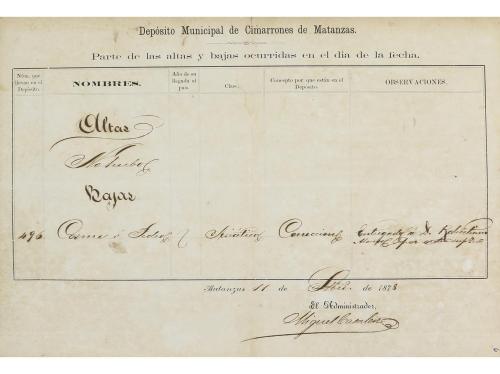 Depósito Municipal de Cimarrones de Matanzas.
Parte de las altas y bajas ocurridas en el dia de la fecha.
Núm. que llevan en el Depósito.
NOMBRES.
Año de su llegada al pais.
Clase.
Concepto por que están en el Depósito
OBSERVACIONES.
Altas
No hubo
Bajas
496 Cosme ó Pedro Asiático Correccion Entregado á D.
Matanzas 11 de de 1873
El Administrador,
Miguel